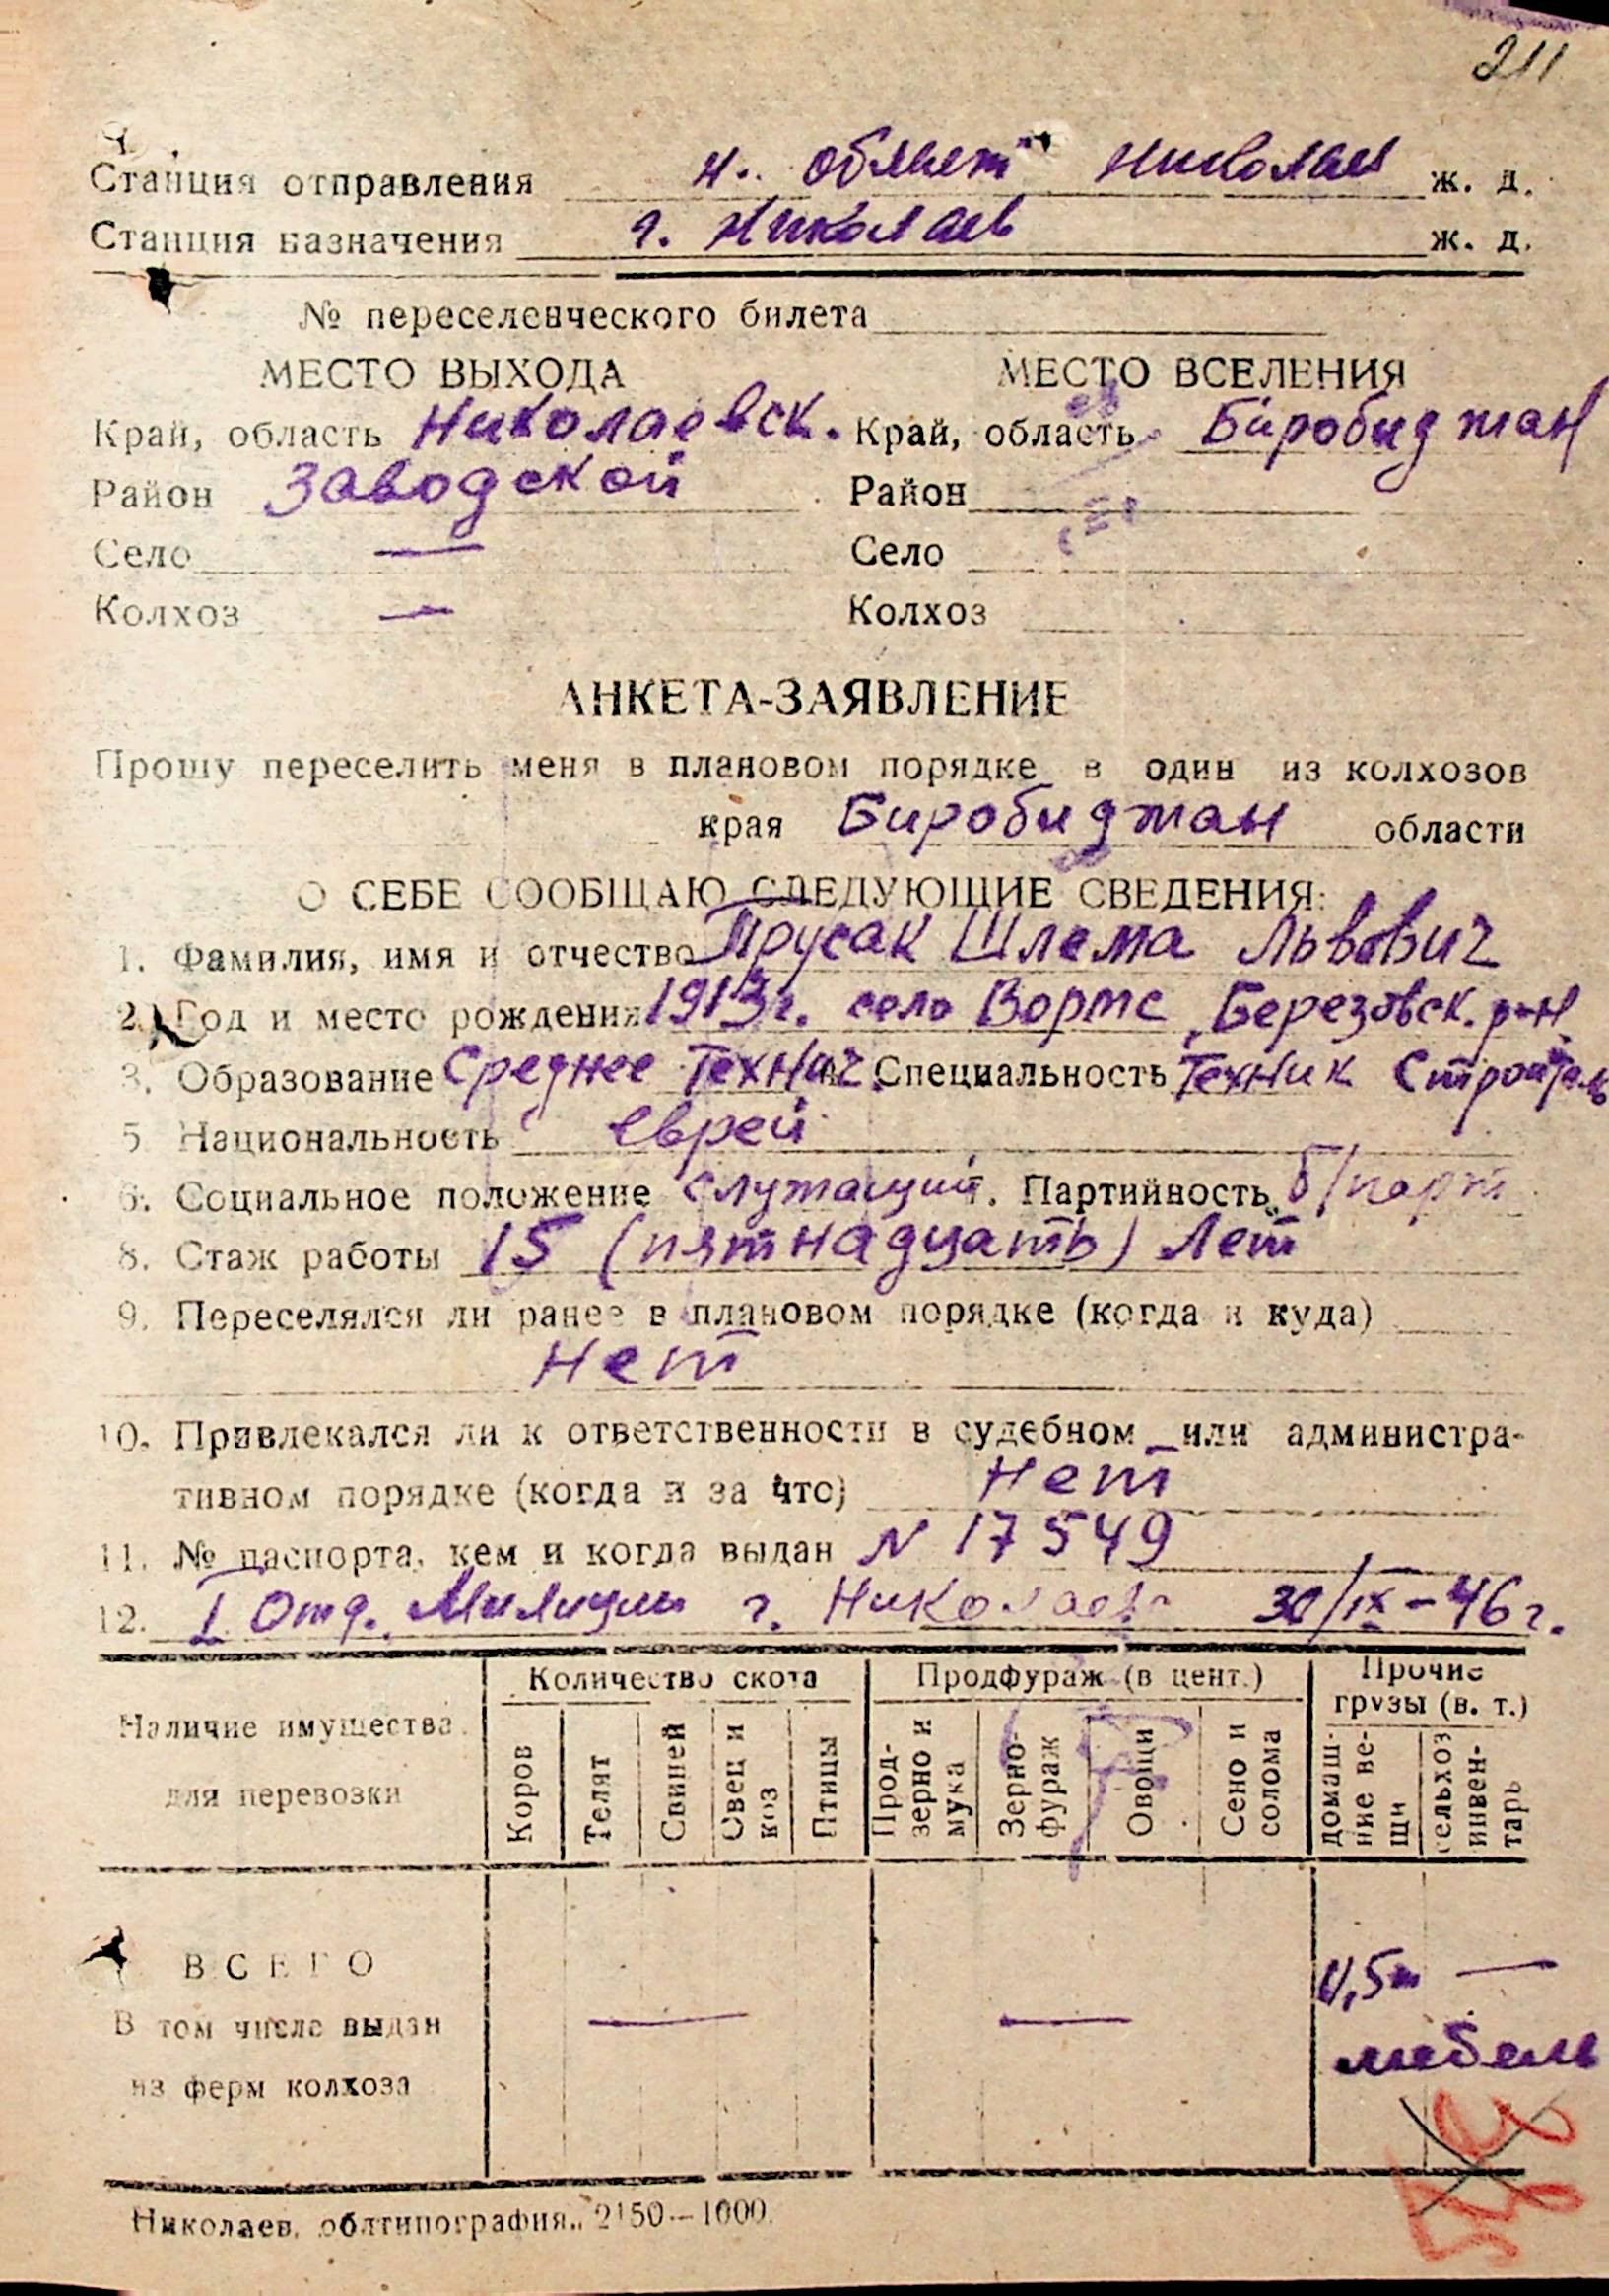 211
Станция отправления Николаев ж. д.
Станция назначения г. Николаев ж. д.
№ переселенческого билета
МЕСТО ВЫХОДА МЕСТО ВСЕЛЕНИЯ
Край, область Николаевск. Край, область Биробиджан
Район Заводской Район
Село — Село
Колхоз — Колхоз
АНКЕТА-ЗАЯВЛЕНИЕ
Прошу переселить меня в плановом порядке в один из колхозов
края Биробиджан области
О СЕБЕ СООБЩАЮ СЛЕДУЮЩИЕ СВЕДЕНИЯ:
1. Фамилия, имя и отчество Прусак Шлема Львович
2. Год и место рождения 1913г. село Вормс, Березовск. р-н
3. Образование Среднее Технич. Специальность Техник Строитель
5 Национальность еврей
6. Социальное положение служащий. Партийность б/парт
8. Стаж работы 15 (пятнадцать) лет
9. Переселялся ли ранее в плановом порядке (когда и куда)
Нет
10. Привлекался ли к ответственности в судебном или администра-
тивном порядке (когда и за что) Нет
11. № паспорта, кем и когда выдан N 17549
12. I Отд. Милиции г. Николаева 30/IX-46г.
Количество скота Продфураж (в цент.) Прочие грузы (в. т.)
Наличие имущества для перевозки Коров Телят Свиней Овец и коз Птицы Прод-зерно и мука Зерно-фураж Овощи Сено и солома домаш-ние ве-щи сельхоз инвен-тарь
ВСЕГО 0,5т —
В том числе выдан — —
из ферм колхоза мебель
Николаев, облтипография,, 2150—1000.